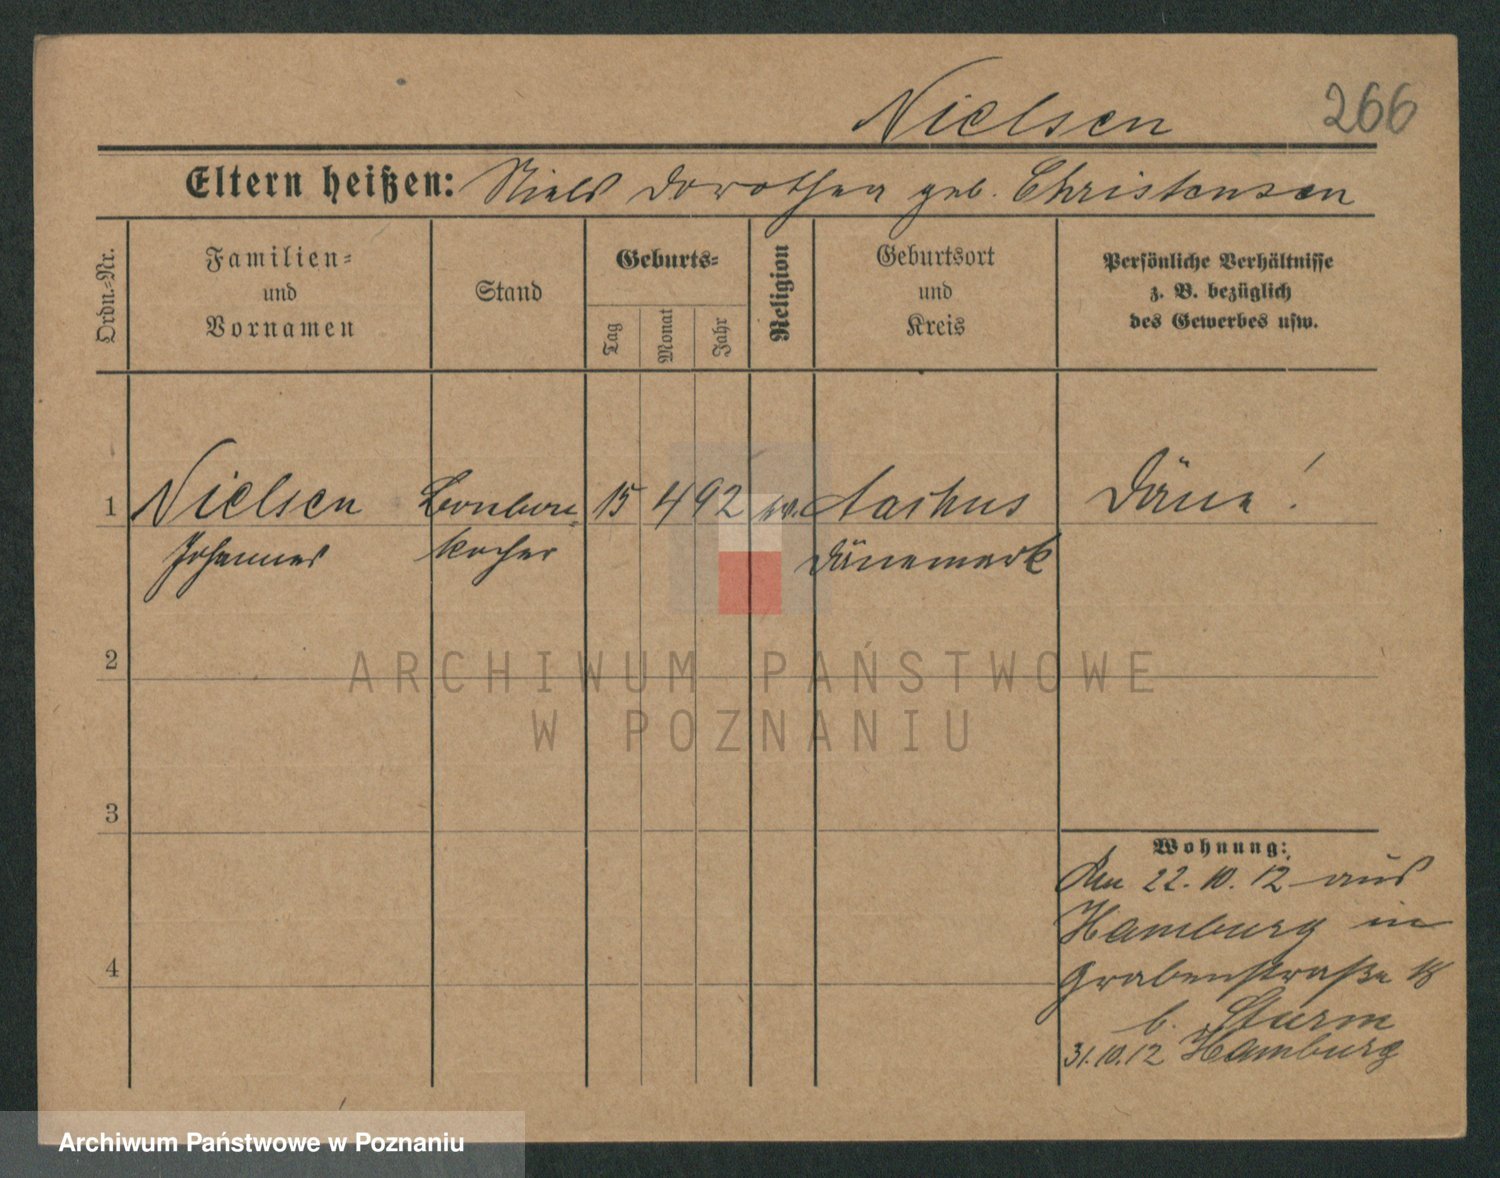 Nielsen 266
Eltern heißen: Niels Dorothea geb. Christensen
Ordn.-Nr.
Familien- und Vornamen
Stand
Geburts-
Tag
Monat
Jahr
Religion
Geburtsort und Kreis
Persönliche Verhältnisse
z. B. bezüglich
des Gewerbes usw.
1 Nielsen Bonbon- 15 4 92 ev. Aarhus Däne!
Johannes kocher Dänemark
2
ARCHIWUM PAŃSTWOWE
W POZNANIU
3
Wohnung:
Am 22.10.12 aus
Hamburg in
4
Grabenstraße 18
b. Sturm
31.10.12 Hamburg
Archiwum Państwowe w Poznaniu